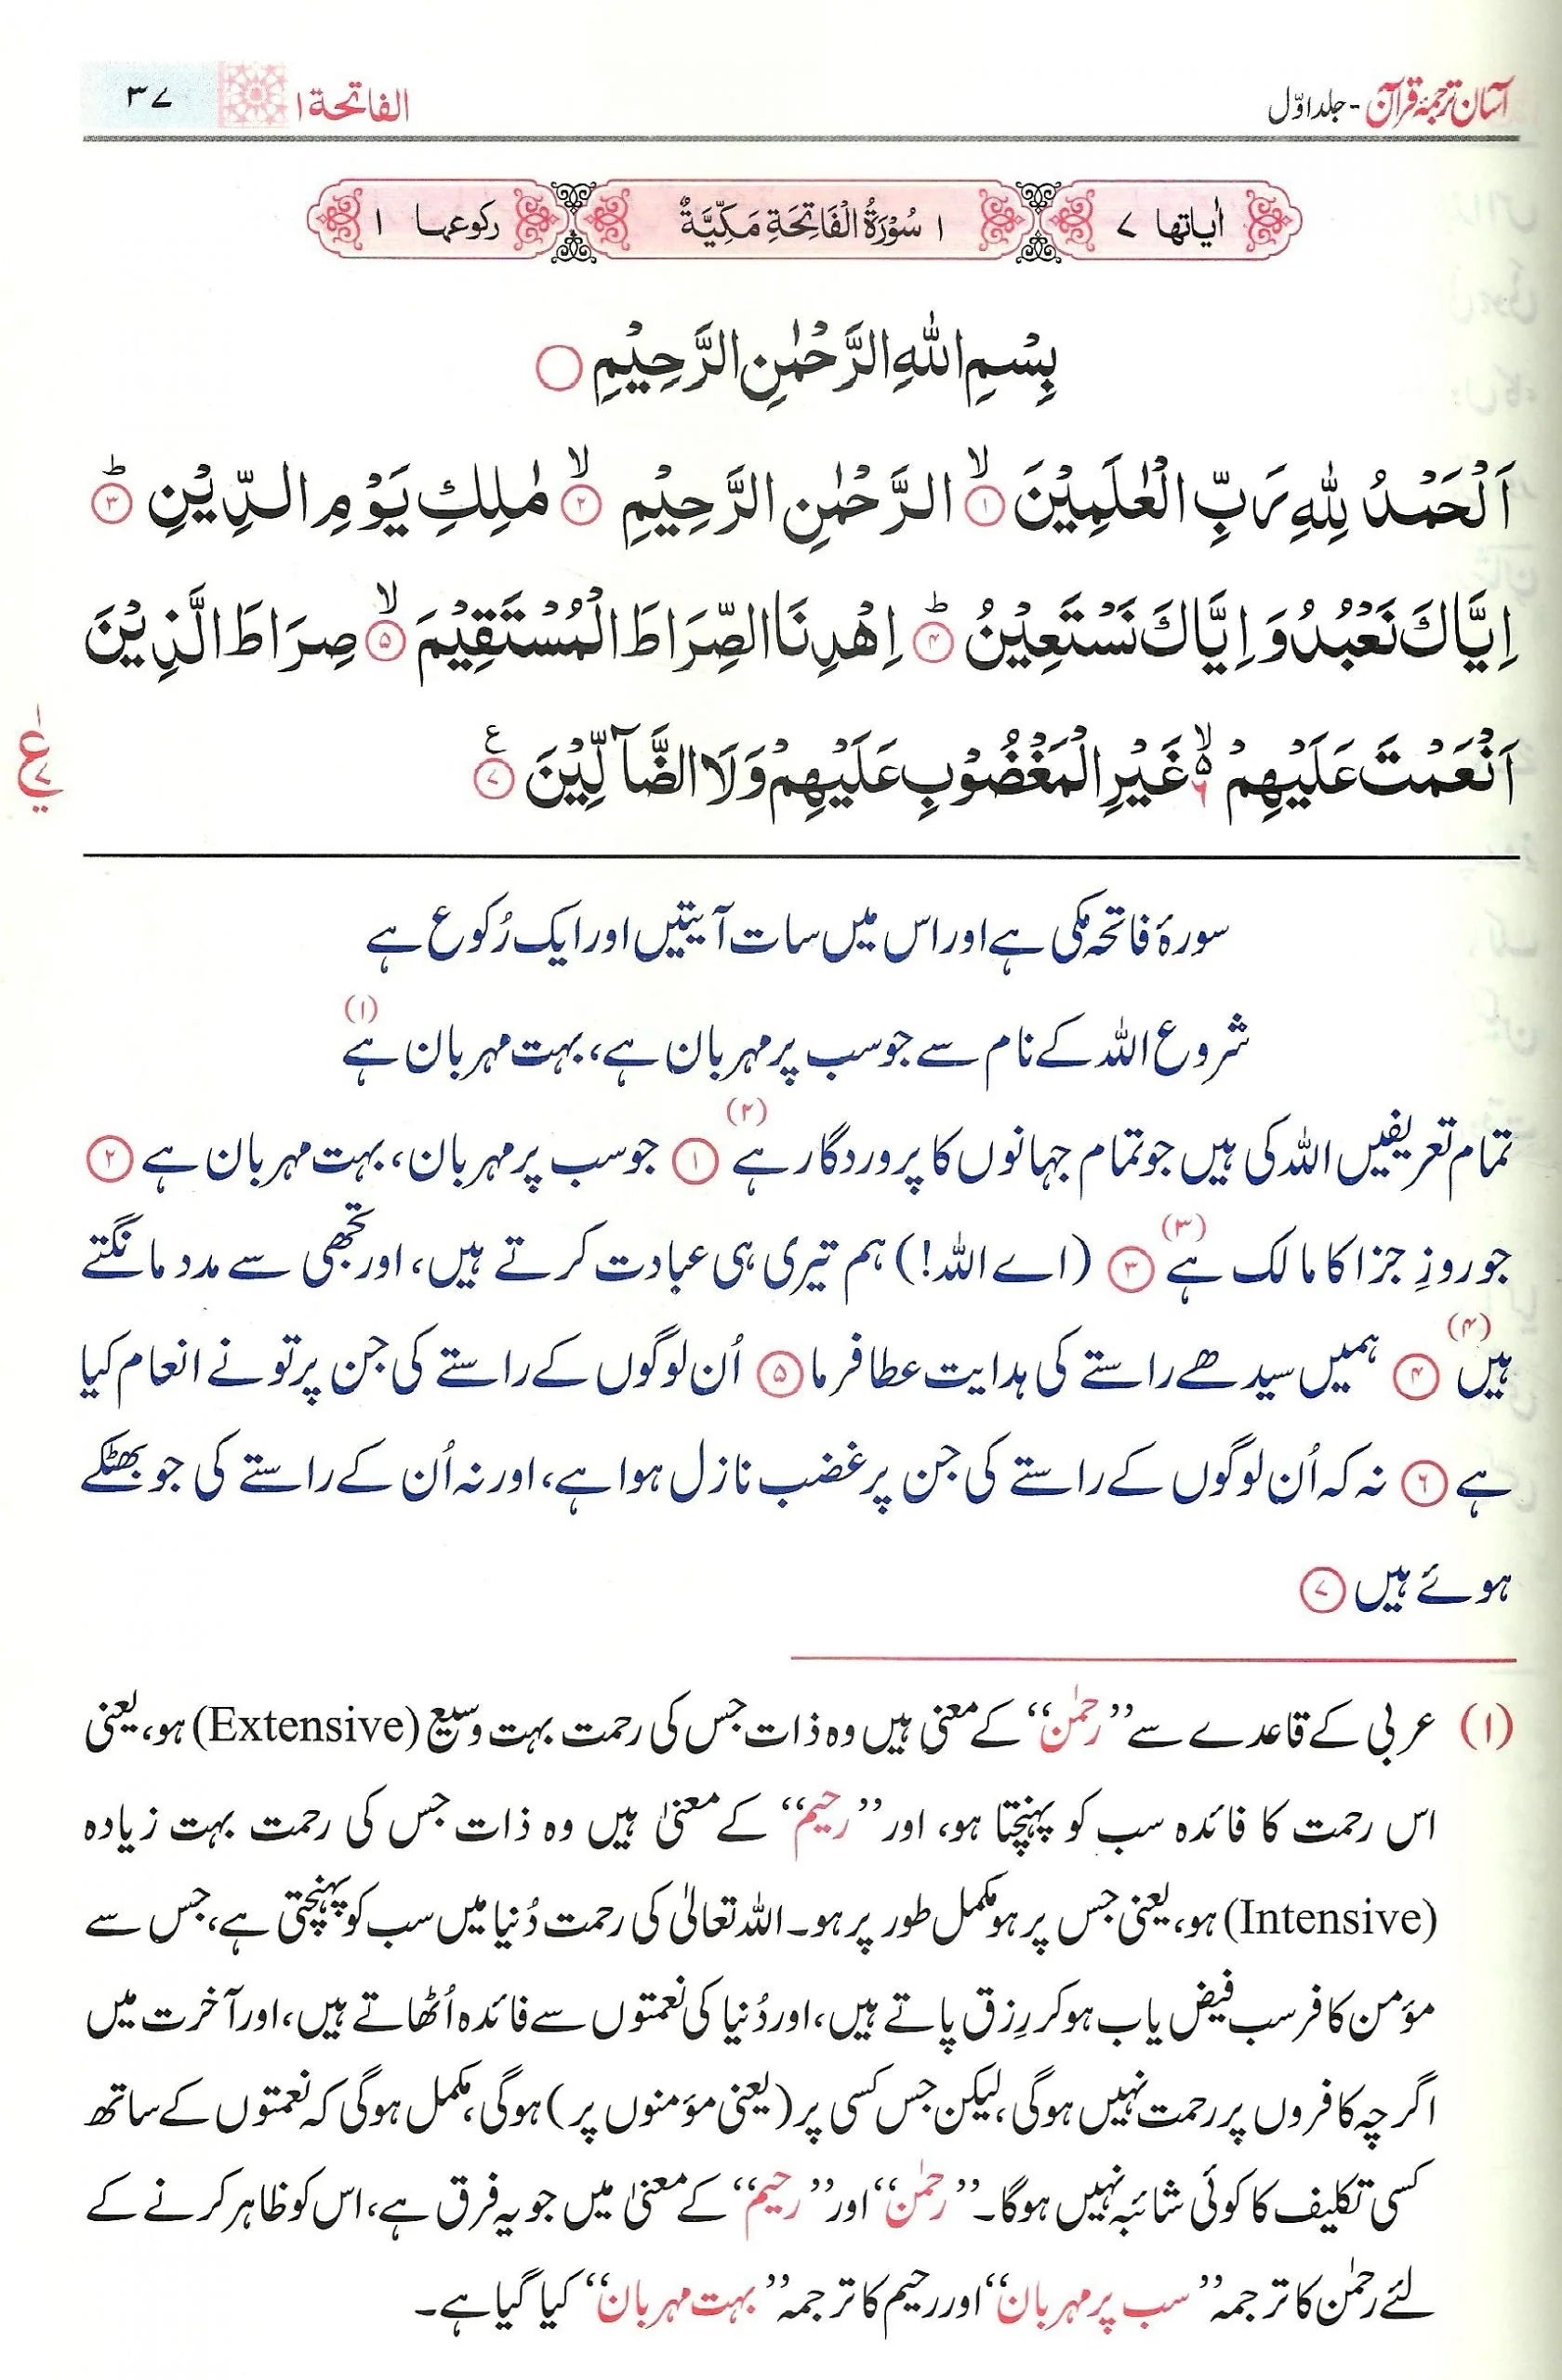 آسان ترجمۂ قرآن - جلد اوّل الفاتحة ۱ ۳۷
اٰیاتها ۷ ۱ سُوْرَةُ الْفَاتِحَةِ مَكِّيَّةٌ رکوعها ۱
بِسْمِ اللّٰهِ الرَّحْمٰنِ الرَّحِيْمِ ○
اَلْحَمْدُ لِلّٰهِ رَبِّ الْعٰلَمِيْنَ ۙ﴿۱﴾ الرَّحْمٰنِ الرَّحِيْمِ ۙ﴿۲﴾ مٰلِكِ يَوْمِ الدِّيْنِ ؕ﴿۳﴾
اِيَّاكَ نَعْبُدُ وَ اِيَّاكَ نَسْتَعِيْنُ ؕ﴿۴﴾ اِهْدِنَا الصِّرَاطَ الْمُسْتَقِيْمَ ۙ﴿۵﴾ صِرَاطَ الَّذِيْنَ
اَنْعَمْتَ عَلَيْهِمْ ۙ۬ۥ۶ غَيْرِ الْمَغْضُوْبِ عَلَيْهِمْ وَلَا الضَّآلِّيْنَ ﴿۷﴾ ع
سورۂ فاتحہ مکی ہے اور اس میں سات آیتیں اور ایک رُکوع ہے
شروع اللہ کے نام سے جو سب پر مہربان ہے، بہت مہربان ہے (۱)
تمام تعریفیں اللہ کی ہیں جو تمام جہانوں کا پروردگار ہے (۲) ﴿۱﴾ جو سب پر مہربان، بہت مہربان ہے ﴿۲﴾
جو روزِ جزا کا مالک ہے (۳) ﴿۳﴾ (اے اللہ!) ہم تیری ہی عبادت کرتے ہیں، اور تجھی سے مدد مانگتے
ہیں (۴) ﴿۴﴾ ہمیں سیدھے راستے کی ہدایت عطا فرما ﴿۵﴾ اُن لوگوں کے راستے کی جن پر تو نے انعام کیا
ہے ﴿۶﴾ نہ کہ اُن لوگوں کے راستے کی جن پر غضب نازل ہوا ہے، اور نہ اُن کے راستے کی جو بھٹکے
ہوئے ہیں ﴿۷﴾
(۱) عربی کے قاعدے سے ’’رحمٰن‘‘ کے معنی ہیں وہ ذات جس کی رحمت بہت وسیع (Extensive) ہو، یعنی
اس رحمت کا فائدہ سب کو پہنچتا ہو، اور ’’رحیم‘‘ کے معنیٰ ہیں وہ ذات جس کی رحمت بہت زیادہ
(Intensive) ہو، یعنی جس پر ہو مکمل طور پر ہو۔ اللہ تعالیٰ کی رحمت دُنیا میں سب کو پہنچتی ہے، جس سے
مؤمن کافر سب فیض یاب ہو کر رِزق پاتے ہیں، اور دُنیا کی نعمتوں سے فائدہ اُٹھاتے ہیں، اور آخرت میں
اگرچہ کافروں پر رحمت نہیں ہوگی، لیکن جس کسی پر (یعنی مؤمنوں پر) ہوگی، مکمل ہوگی کہ نعمتوں کے ساتھ
کسی تکلیف کا کوئی شائبہ نہیں ہوگا۔ ’’رحمٰن‘‘ اور ’’رحیم‘‘ کے معنیٰ میں جو یہ فرق ہے، اس کو ظاہر کرنے کے
لئے رحمٰن کا ترجمہ ’’سب پر مہربان‘‘ اور رحیم کا ترجمہ ’’بہت مہربان‘‘ کیا گیا ہے۔